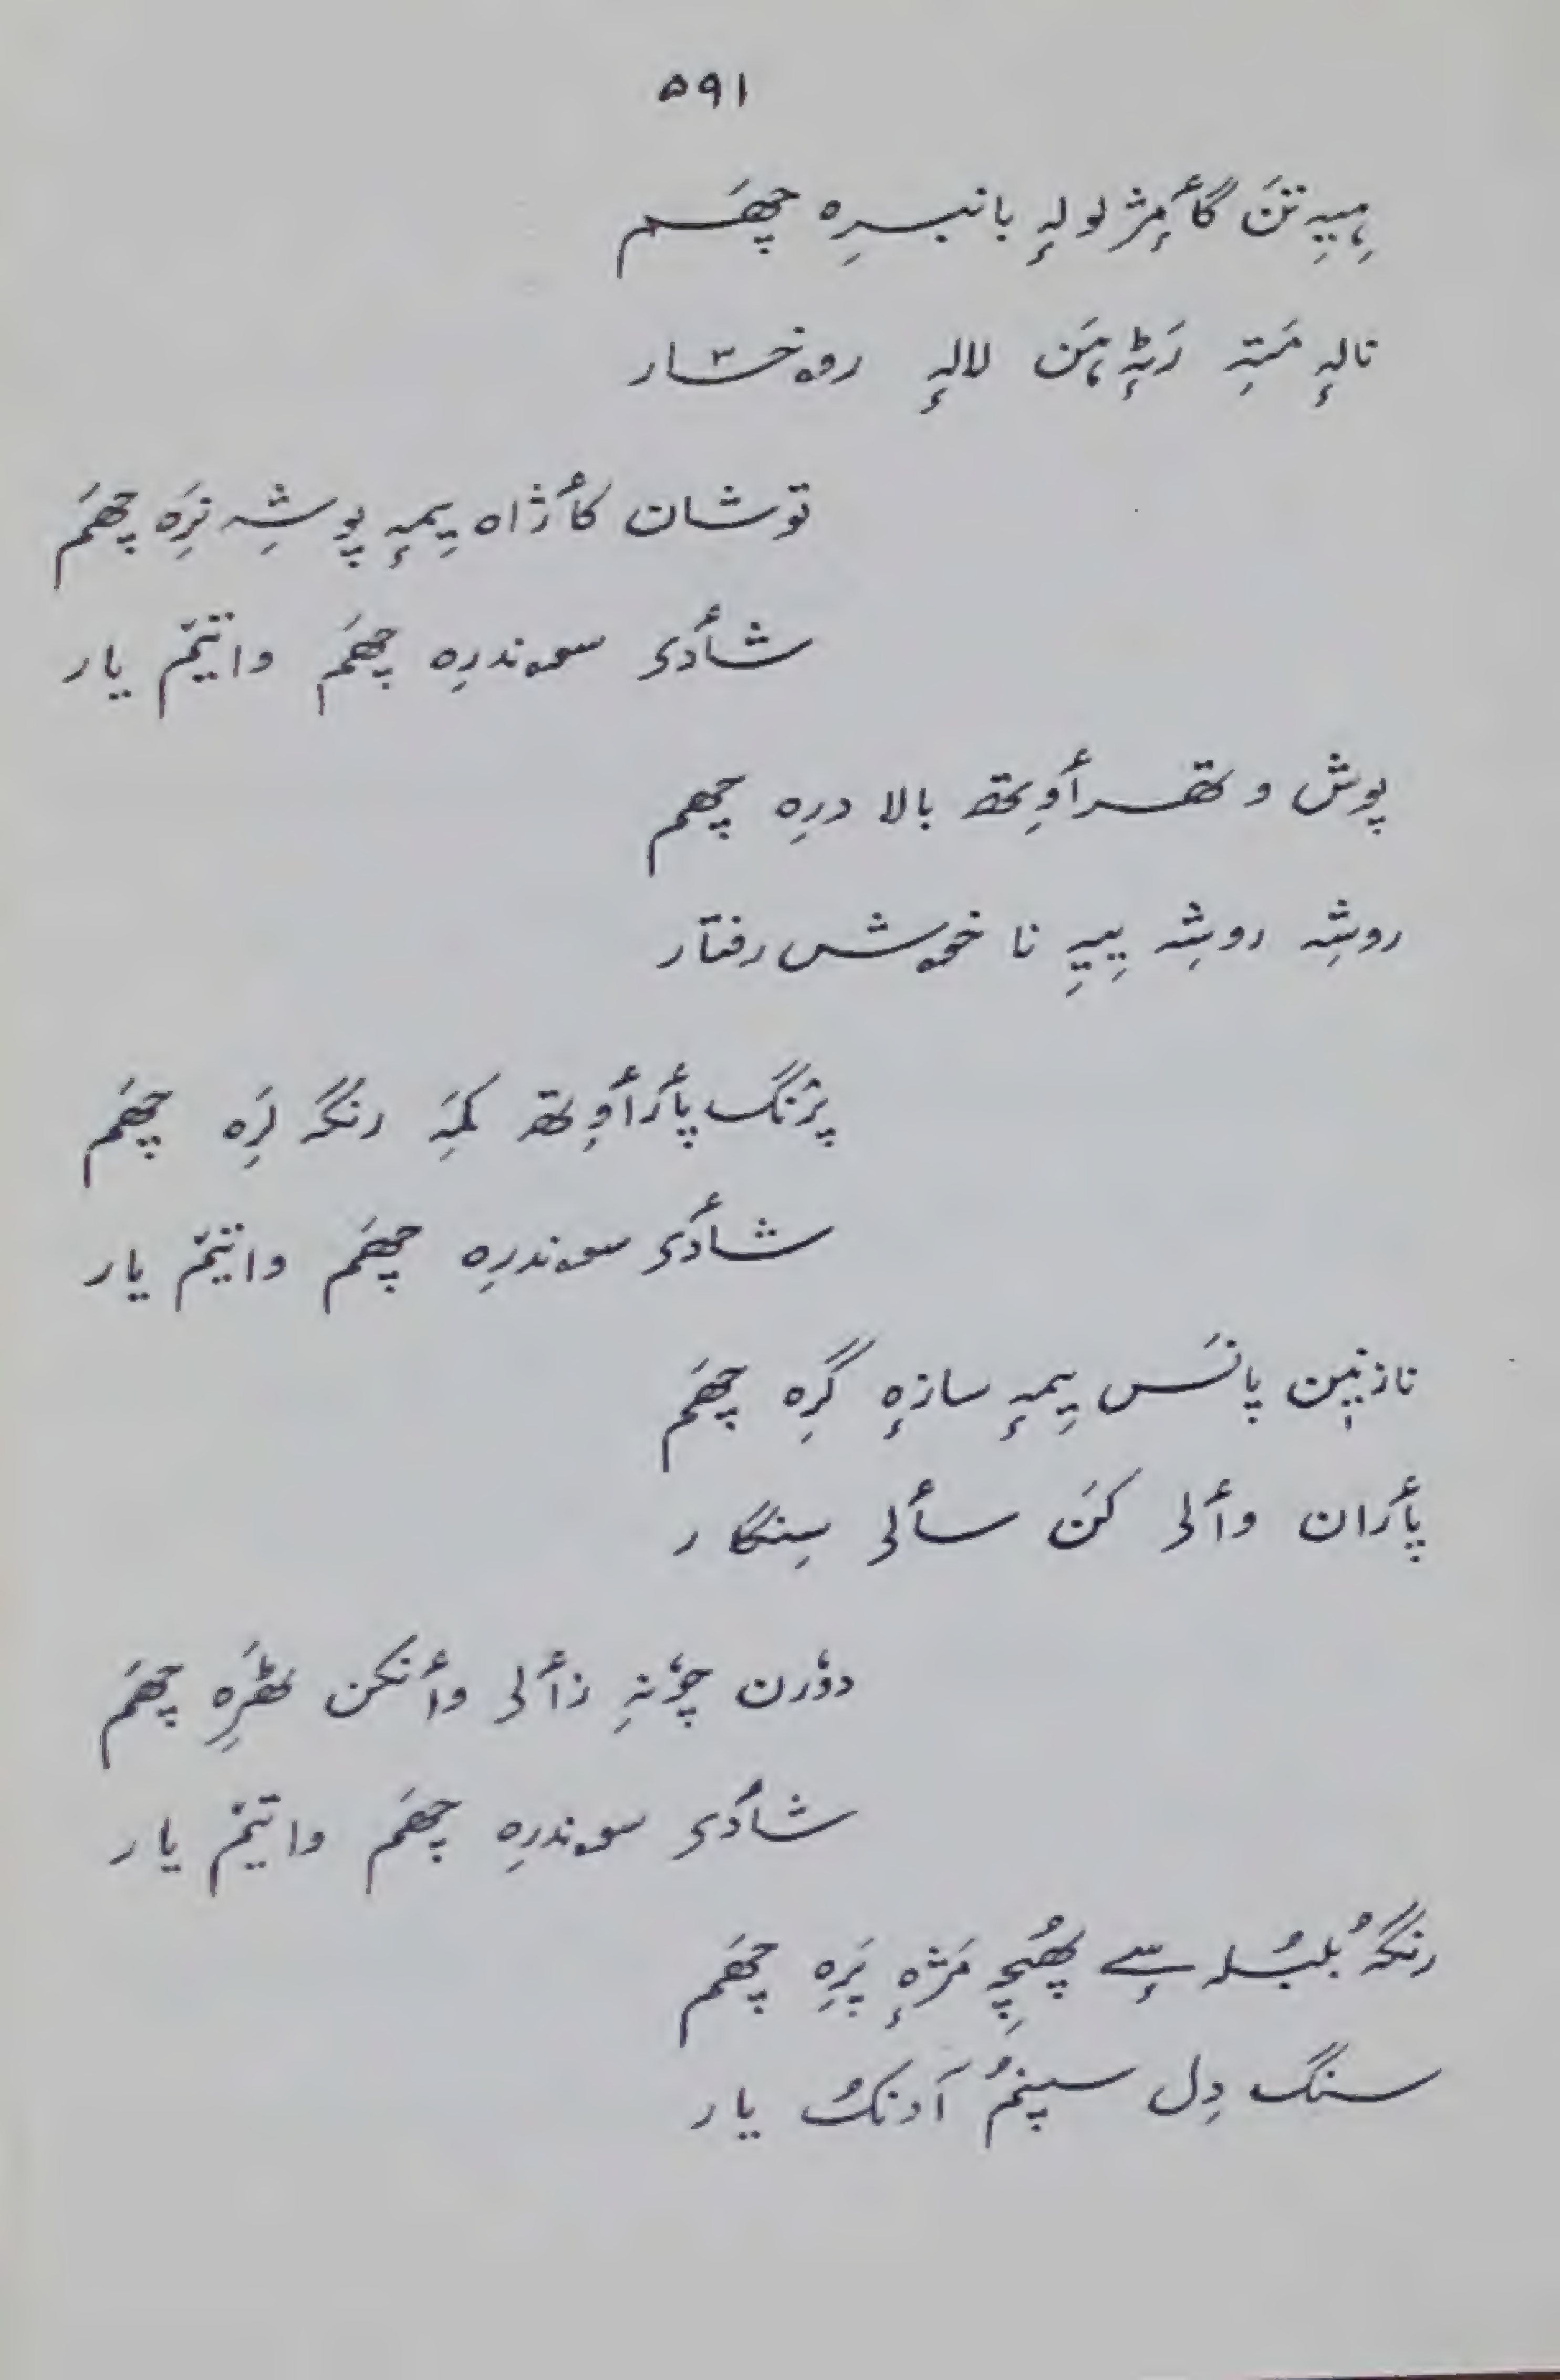 ۵۹۱
ہِیہِ تَنَ گأمِژ لولہٕ بانبرِہ چھَم
نالہٕ مَتہِ رَٹہٕ ہَن لالہٕ روٚخسار
توشان کأژاہ یِمہٕ پوشِہ نَرِہ چھَم
شأدی سوٚندرِہ چھَم واتیَم یار
پوش وتھرأوِتھ بالا درِہ چھم
روشہِ روشہِ یِیہِ نا خوٚش رفتار
پرٛنگ پأرأوِتھ کمہِ رنگہ لَرِہ چھَم
شأدی سوٚندرِہ چھَم واتیَم یار
نازنیٖن پانَس یِمہٕ سازٕہ گَرِہ چھَم
پأران وألی کَن سألی سِنگار
دوٗرن چوٗنہِ زألی وأنکن ٹھَرِہ چھَم
شأدی سوٚندرِہ چھَم واتیَم یار
رنگہٕ بُلبُلہ سٕے پھُچہِ مَژٕہ پَرِہ چھَم
سنگ دِل سپنُم آونکُ یار